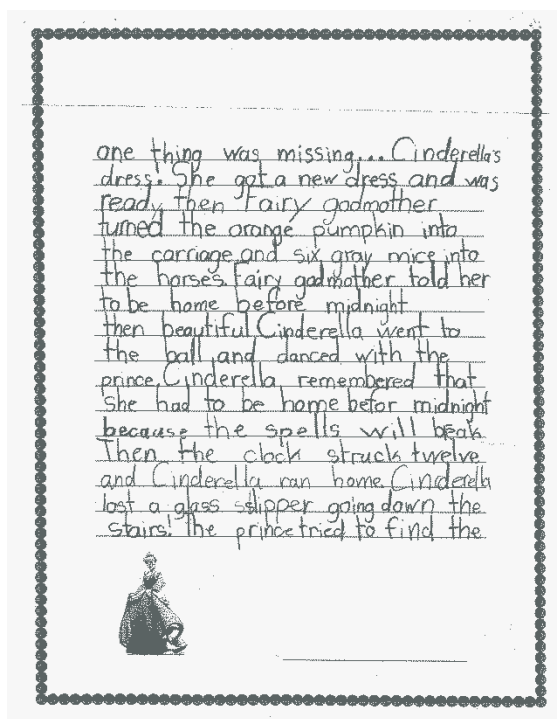 one thing was missing... Cinderella's
dress! She got a new dress and was
ready then Fairy godmother
turned the orange pumpkin into
the carriage and six gray mice into
the horses. Fairy godmother told her
to be home before midnight
then beautiful Cinderella went to
the ball and danced with the
prince. Cinderella remembered that
she had to be home befor midnight
because the spells will break
Then the clock struck twelve
and Cinderella ran home. Cinderella
lost a glass sslipper going down the
stairs! The prince tried to find the